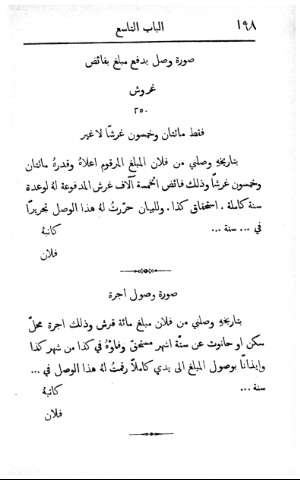 ١٩٨
الباب التاسع
صورة وصل بدفع مبلغ بفائض
غروش
٢٥٠
فقط مائتان وخمسون غرشًا لا غير
بتاريخهِ وصلني من فلان المبلغ المرقوم اعلاهُ وقدرهُ مائتان
وخمسون غرشًا وذلك فائض الخمسة آلاف غرش المدفوعة لهُ لوعدة
سنة كاملة ، استحقاق كذا . وللبيان حرّرتُ لهُ هذا الوصل تحريرًا
في ... سنة ...
كاتبهُ
فلان
صورة وصول اجرة
بتاريخهِ وصلني من فلان مبلغ مائة قرش وذلك اجرة محلّ
سكن او حانوت عن ستّة اشهر مستحقّ وفاؤهُ في كذا من شهر كذا
وإيذانًا بوصول المبلغ الى يدي كاملًا رقمتُ لهُ هذا الوصل في ...
سنة ...
كاتبهُ
فلان